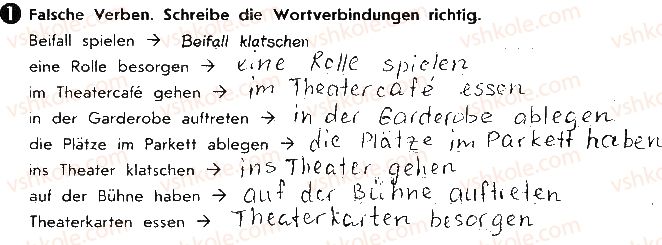 1 Falsche Verben. Schreibe die Wortverbindungen richtig.
Beifall spielen → Beifall klatschen
eine Rolle besorgen → eine Rolle spielen
im Theatercafé gehen → im Theatercafé essen
in der Garderobe auftreten → in der Garderobe ablegen
die Plätze im Parkett ablegen → die Plätze im Parkett haben
ins Theater klatschen → ins Theater gehen
auf der Bühne haben → auf der Bühne auftreten
Theaterkarten essen → Theaterkarten besorgen